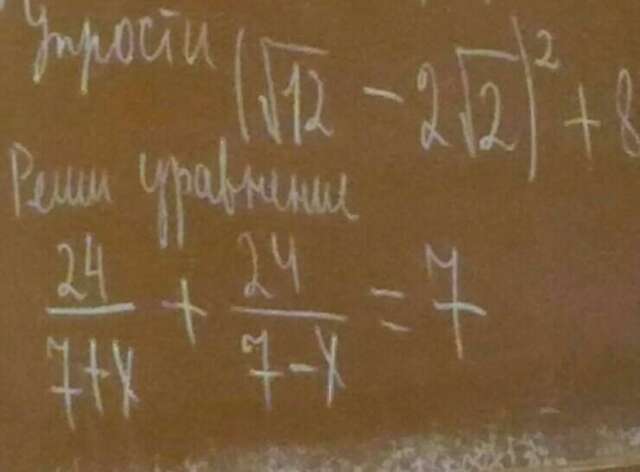 Упрости (√12 - 2√2)² + 8
Реши уравнение
24/(7+x) + 24/(7-x) = 7